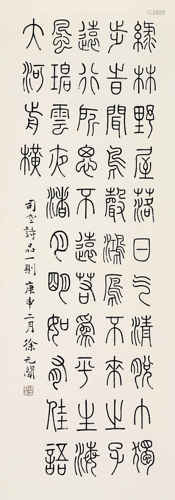 綠林野屋落日气清脫巾獨
步時聞鳥聲鴻雁不來之子
遠行所思不遠若為平生海
風碧雲夜渚月明如有佳語
大河前橫
司空詩品一則 庚申二月 徐无聞